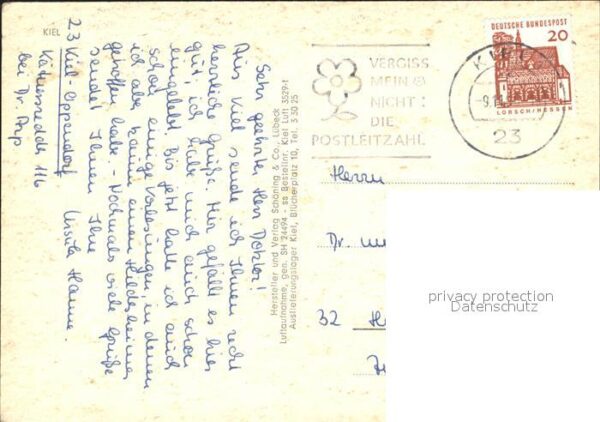 KIEL
Sehr geehrter Herr Doktor!
Aus Kiel sende ich Ihnen recht
herzliche Grüße. Mir gefällt es hier
gut, ich habe mich auch schon
eingelebt. Bis jetzt hatte ich auch
schon einige Vorlesungen, in denen
ich aber keinen einen Hildesheimer
getroffen habe. - Nochmals viele Grüße
sendet Ihnen Ihre
Ursula Hanne.
23 Kiel-Oppendorf
116
bei Dr. Pap
Hersteller und Verlag Schöning & Co., Lübeck
Luftaufnahme, gen. SH 24494 - ss Bestellnr. Kiel Luft 3529-1
Auslieferungslager Kiel, Blücherplatz 10, Tel. 5 50 25
VERGISS
MEIN
NICHT:
DIE
POSTLEITZAHL
KIEL
-9.11.
23
DEUTSCHE BUNDESPOST
20
LORSCH/HESSEN
Herrn
Dr.
32
privacy protection
Datenschutz